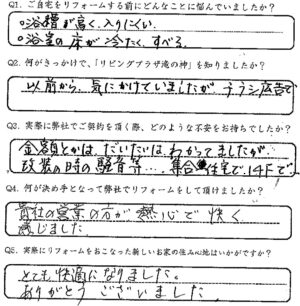 Q1. ご自宅をリフォームする前にどんなことに悩んでいましたか?
○浴槽が高く、入りにくい。
○浴室の床が冷たく、すべる。
Q2. 何がきっかけで、「リビングプラザ滝の神」を知りましたか?
以前から、気にかけていましたが チラシ広告で
Q3. 実際に弊社でご契約を頂く際、どのような不安をお持ちでしたか?
金額とかは、だいたいは、わかってましたが、
改装の時の騒音等… 集合住宅で、14Fで、
Q4. 何が決め手となって弊社でリフォームをして頂けましたか?
貴社の営業の方が 熱心で 快く
感じました。
Q5. 実際にリフォームをおこなった新しいお家の住み心地はいかがですか?
とても 快適になりました。
ありがとう ございました